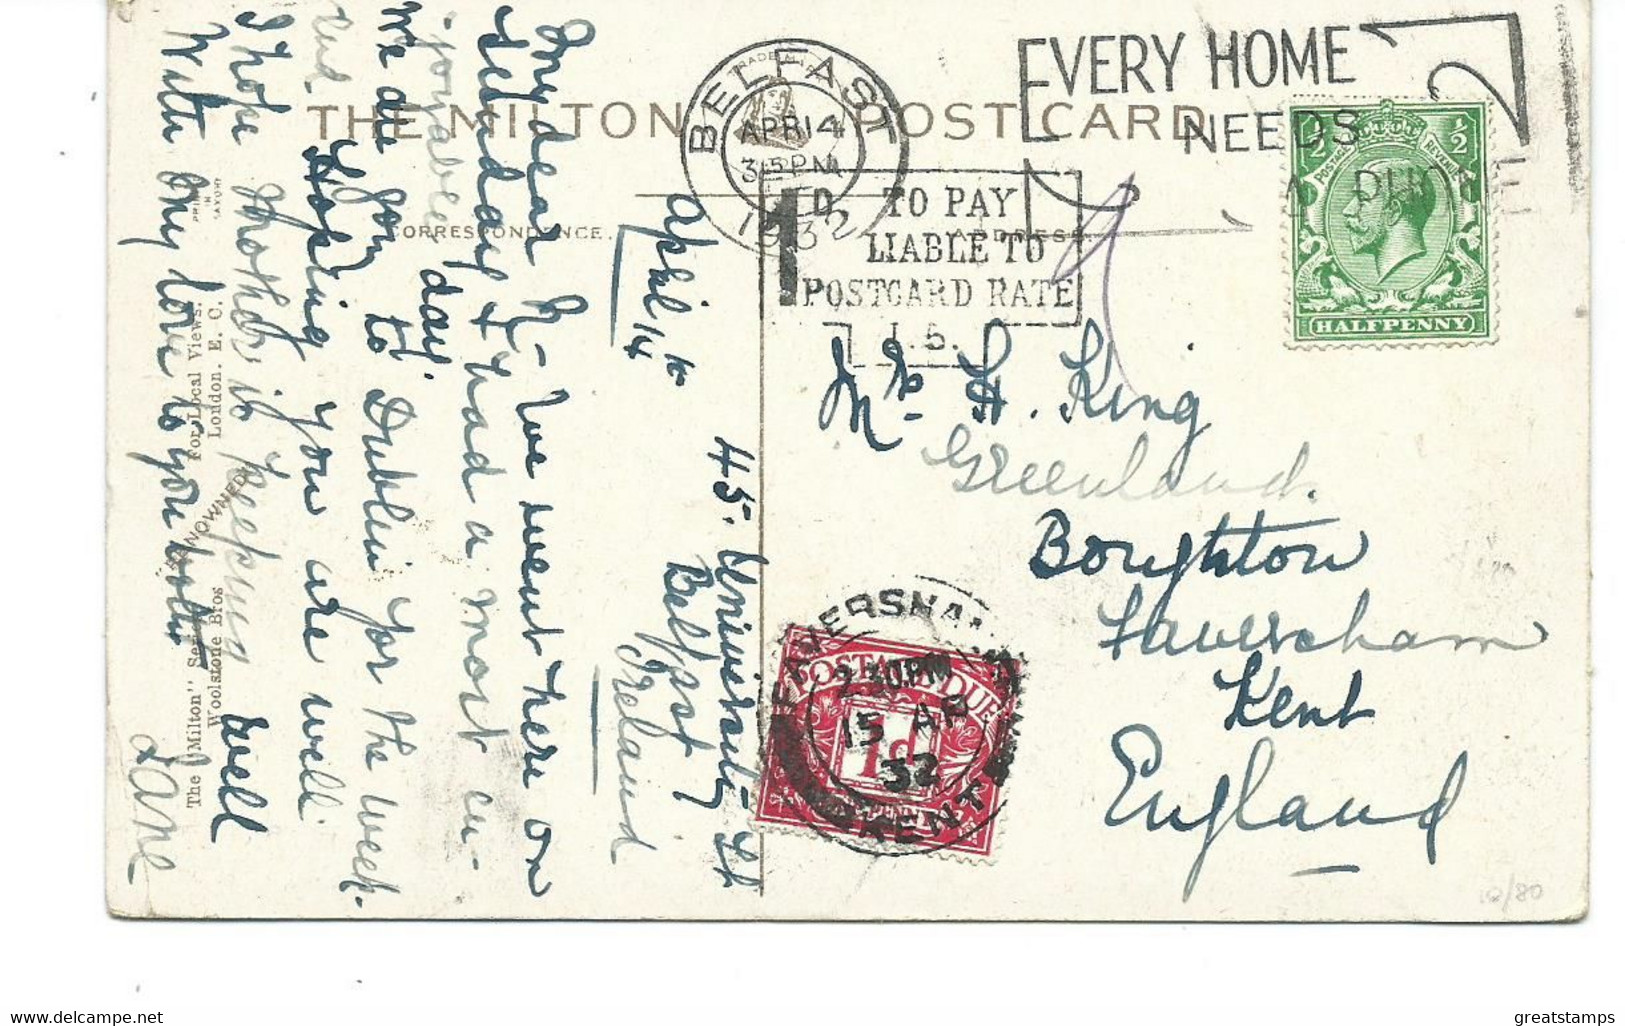 THE MILTON POST CARD
CORRESPONDENCE.
ADDRESS
April 14th
45. University St
Belfast
Ireland
My dear N- We went here on
Sunday & had a most en-
joyable day.
We are going to Dublin for the week
end
Hoping you are well
I hope Mother is keeping well
With my love to you both
PRINTED
IN
SAXONY
The "Milton" Series
Woolstone Bros
For Local Views.
London. E. C.
BELFAST
APR 14
315PM
1932
EVERY HOME
NEEDS
A PHO
1D
TO PAY
LIABLE TO
POSTCARD RATE
I.S.
POSTAGE
REVENUE
½
½
HALFPENNY
H. King
Greenland.
Boughton
Faversham
Kent
England
POSTAGE DUE
1d
ONE PENNY
FAVERSHAM
2.30PM
15 AP
32
KENT
12/80
www.delcampe.net
greatstamps